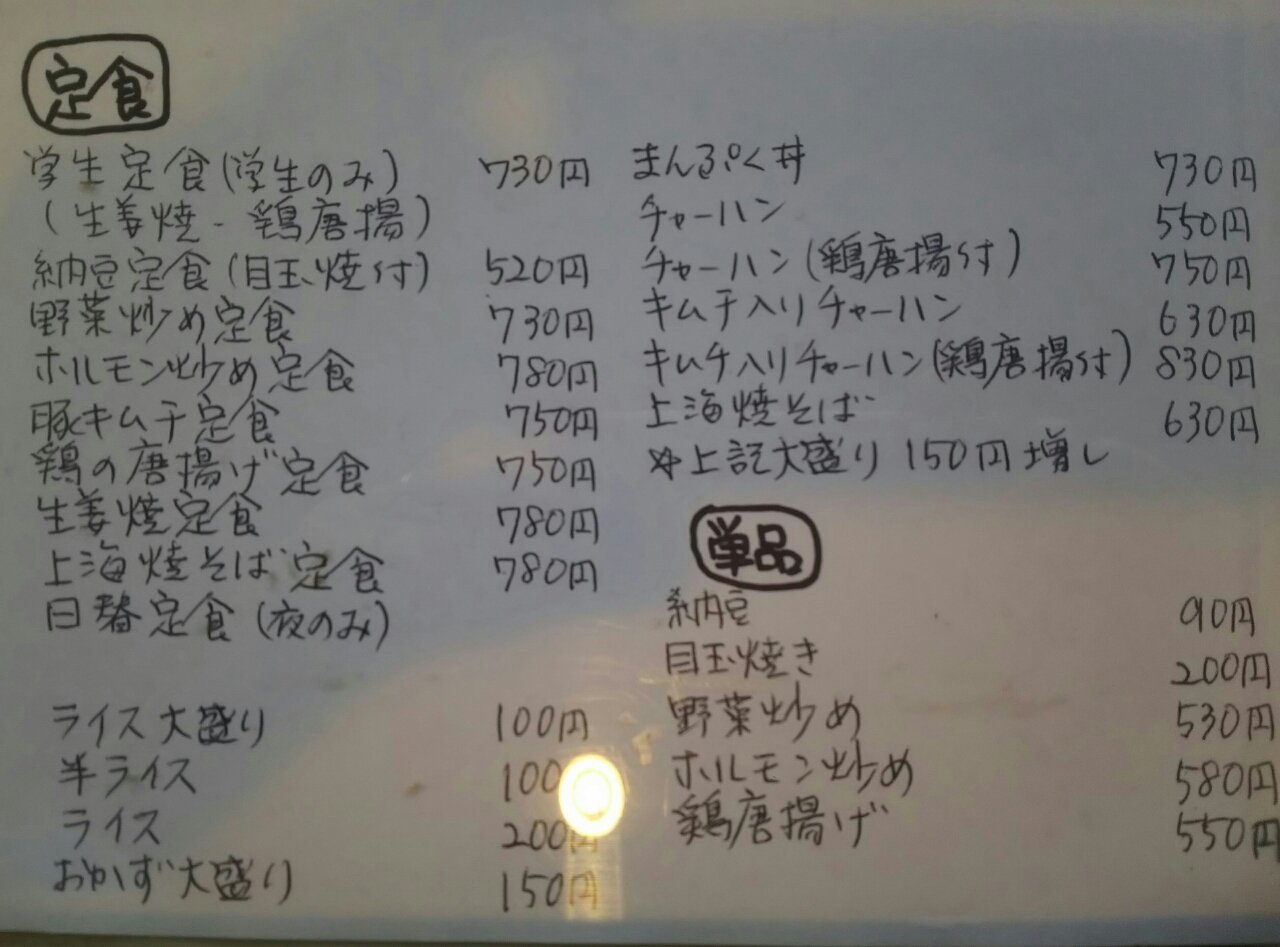 定食
学生定食(学生のみ) 730円
(生姜焼-鶏唐揚)
納豆定食(目玉焼付) 520円
野菜炒め定食 730円
ホルモン炒め定食 780円
豚キムチ定食 750円
鶏の唐揚げ定食 750円
生姜焼定食 780円
上海焼そば定食 780円
日替定食(夜のみ)
ライス大盛り 100円
半ライス 100
ライス 200円
おかず大盛り 150円
まんぷく丼 730円
チャーハン 550円
チャーハン(鶏唐揚付) 750円
キムチ入りチャーハン 630円
キムチ入りチャーハン(鶏唐揚付) 830円
上海焼そば 630円
☆上記大盛り 150円増し
単品
納豆 90円
目玉焼き 200円
野菜炒め 530円
ホルモン炒め 580円
鶏唐揚げ 550円